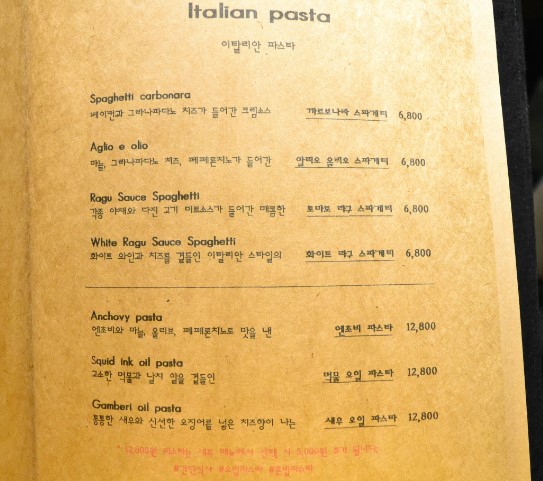 Italian pasta
이탈리안 파스타
Spaghetti carbonara
베이컨과 그라나파다노 치즈가 들어간 크림소스 까르보나라 스파게티 6,800
Aglio e olio
마늘, 그라나파다노 치즈, 페페론치노가 들어간 알리오 올리오 스파게티 6,800
Ragu Sauce Spaghetti
각종 야채와 다진 고기 미트소스가 들어간 매콤한 토마토 라구 스파게티 6,800
White Ragu Sauce Spaghetti
화이트 와인과 치즈를 곁들인 이탈리안 스타일의 화이트 라구 스파게티 6,800
Anchovy pasta
엔초비와 마늘, 올리브, 페페론치노로 맛을 낸 엔초비 파스타 12,800
Squid ink oil pasta
고소한 먹물과 날치 알을 곁들인 먹물 오일 파스타 12,800
Gamberi oil pasta
통통한 새우와 신선한 오징어를 넣은 치즈향이 나는 새우 오일 파스타 12,800
* 12,800원 파스타는 세트 메뉴에서 선택 시 5,000원 추가 됩니다.